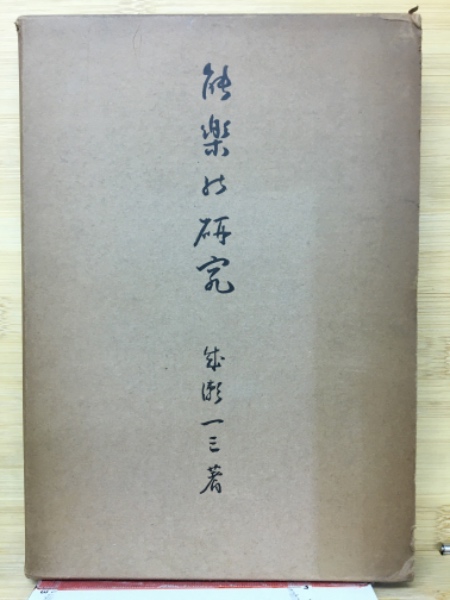 能楽の研究
成瀬一三著